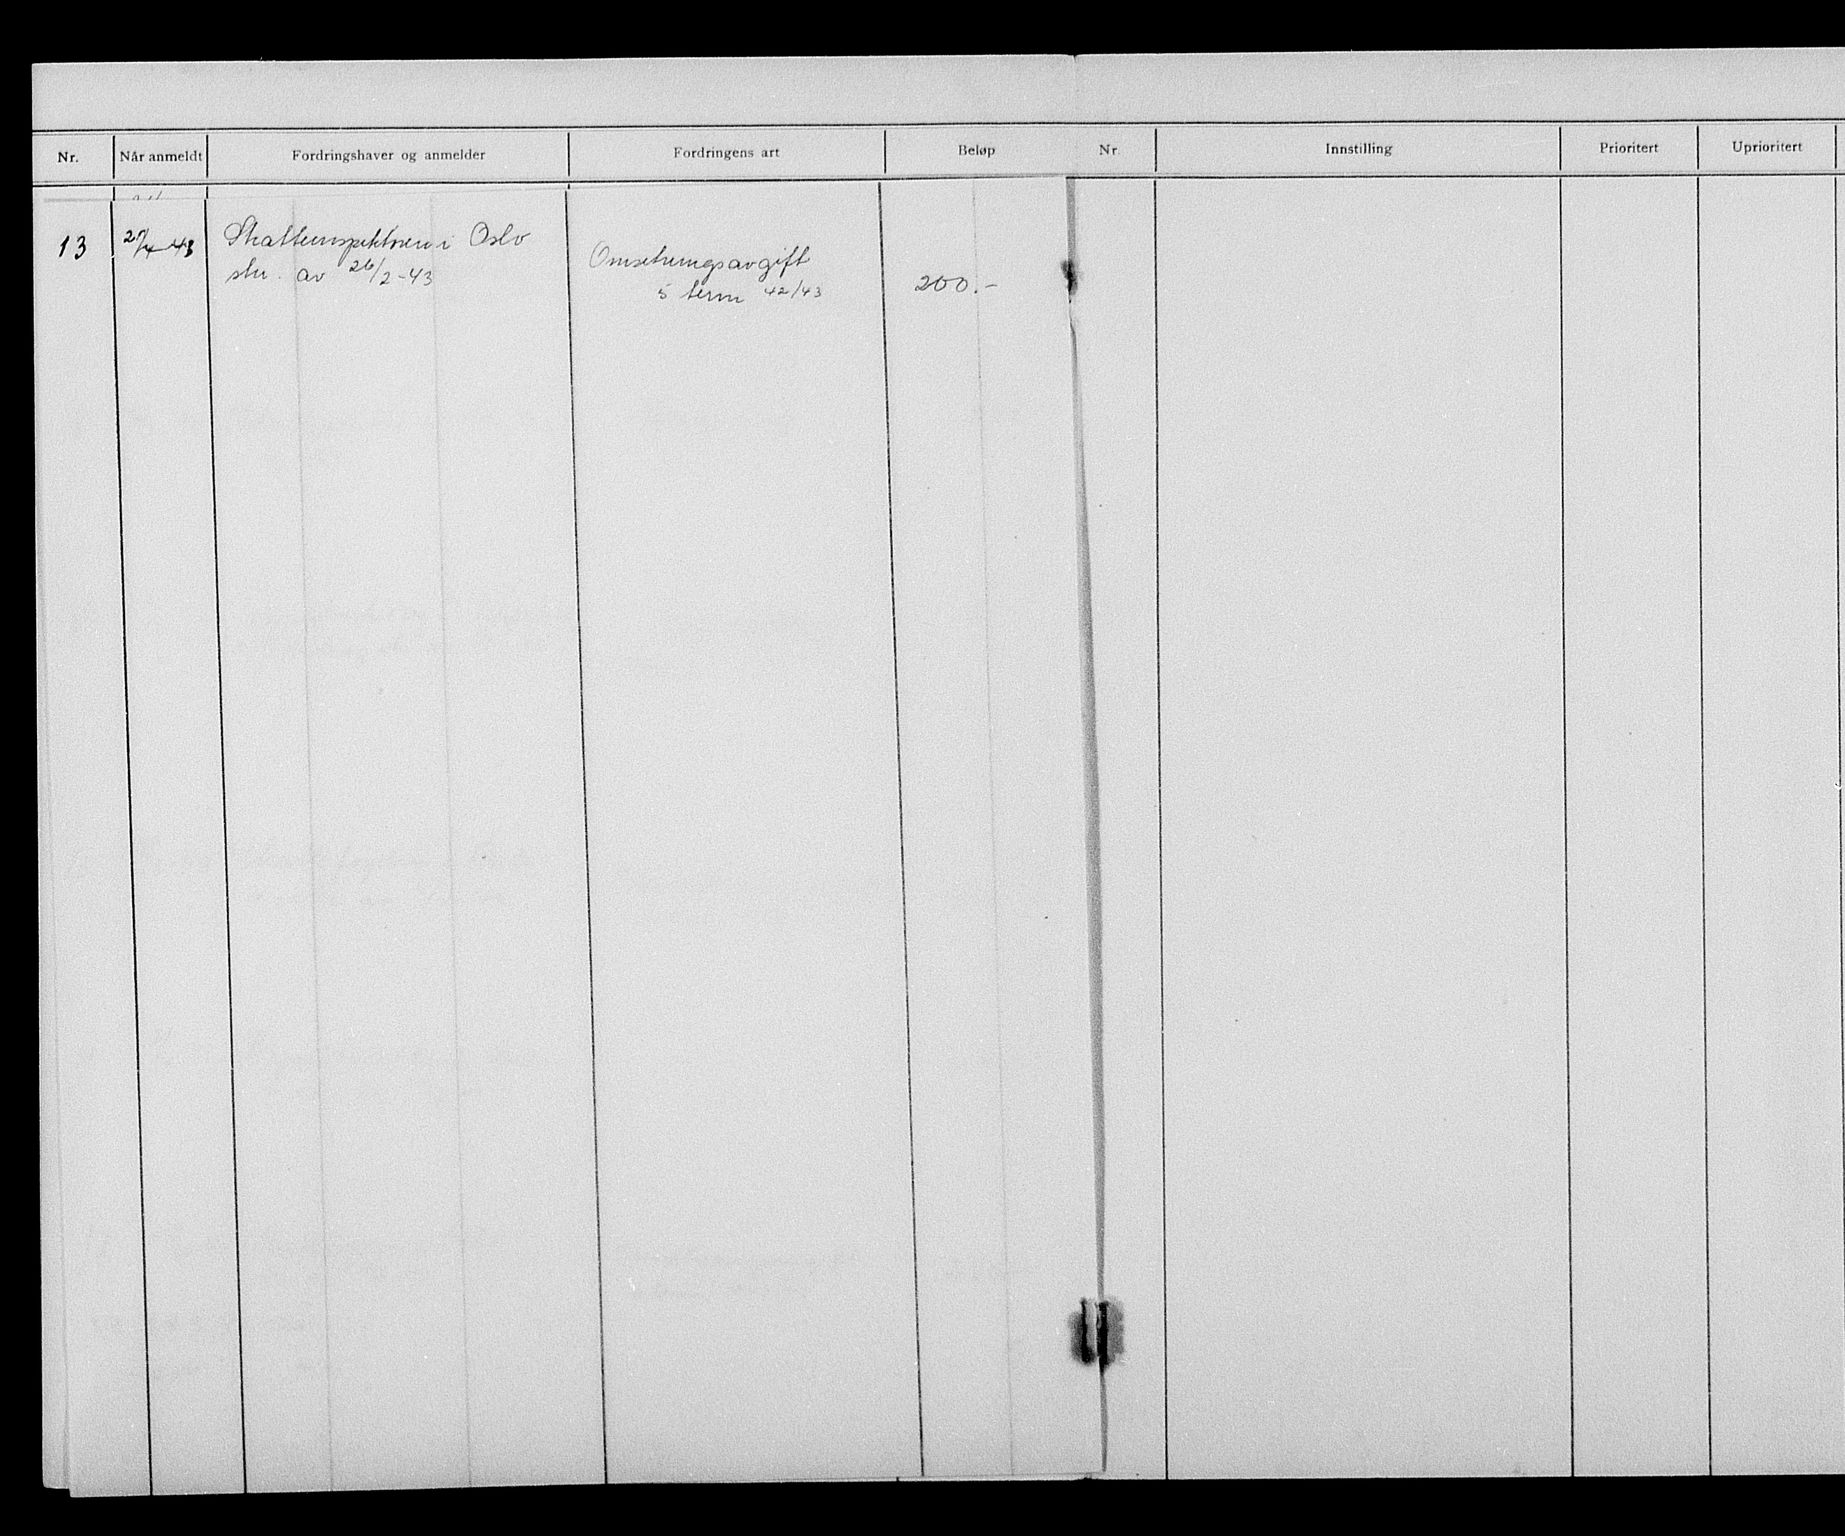 Nr. Når anmeldt Fordringshaver og anmelder Fordringens art Beløp Nr. Innstilling Prioritert Uprioritert
13 Skatteinspektøren i Oslo
skr. av 26/2-43
Omsetningsavgift
5 term 42/43 200.-